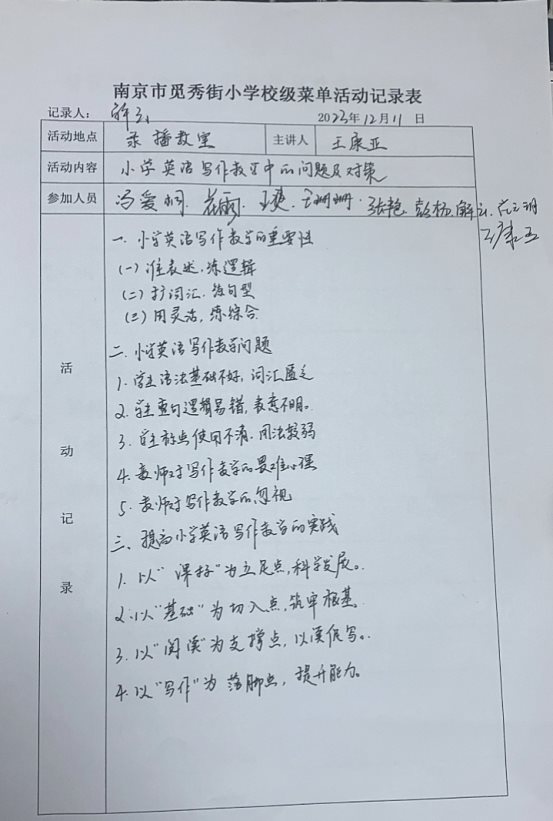 南京市觅秀街小学校级菜单活动记录表
记录人： 2023年12月11日
活动地点 录播教室 主讲人 王康亚
活动内容 小学英语写作教学中的问题及对策
参加人员 冯爱桐、
一、小学英语写作教学的重要性
(一) 准表述，练逻辑
(二) 扩词汇，练句型
(三) 用灵活，练综合
二、小学英语写作教学问题
1. 学生语法基础不好，词汇匮乏
2. 学生重句逻辑易错，表意不明。
3. 学生标点使用不清，用法较弱
4. 教师对写作教学的畏难心强
5. 教师对写作教学的忽视
三、提高小学英语写作教学的实践
1. 以“课标”为立足点，科学发展。
2. 以“基础”为切入点，筑牢根基
3. 以“阅读”为支撑点，以读促写。
4. 以“写作”为落脚点，提升能力。
活动记录